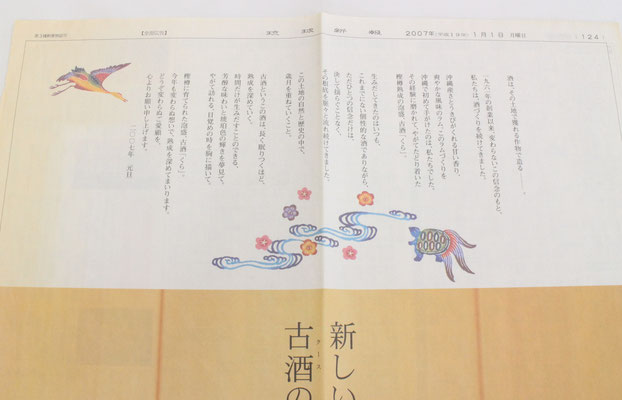 第三種郵便物認可
【全面広告】
琉球新報
2007年(平成19年)1月1日 月曜日
(124)
酒は、その土地で穫れる作物で造る――、
一九六一年の創業以来、変わらないこの信念のもと、
私たちは、酒づくりを続けてきました。
沖縄産さとうきびがくれる甘い香り、
爽やかな風味のラム。このラムづくりを
沖縄で初めて手がけたのは、私たちでした。
その経験に磨かれて、やがてたどり着いた
樫樽熟成の泡盛、古酒「くら」。
生みだしてきたのはいつも、
これまでにない個性的な酒でありながら、
ただひとつの信念だけは、
決して揺らぐことなく、
その根底を脈々と流れ続けてきました。
この土地の自然と歴史の中で、
歳月を重ねていくこと。
古酒というこの酒は、長く眠りつくほど、
熟成を深めていく。
時間だけが生みだすことのできる、
芳醇な味わいと琥珀色の輝きを夢見て、
やがて訪れる、目覚めの時を胸に描いて。
樫樽に育てられた泡盛、古酒「くら」。
今年も変わらぬ想いで、熟成を深めてまいります。
どうぞ変わらぬご愛顧を、
心よりお願い申し上げます。
二〇〇七年 元旦
新しい
クース
古酒の